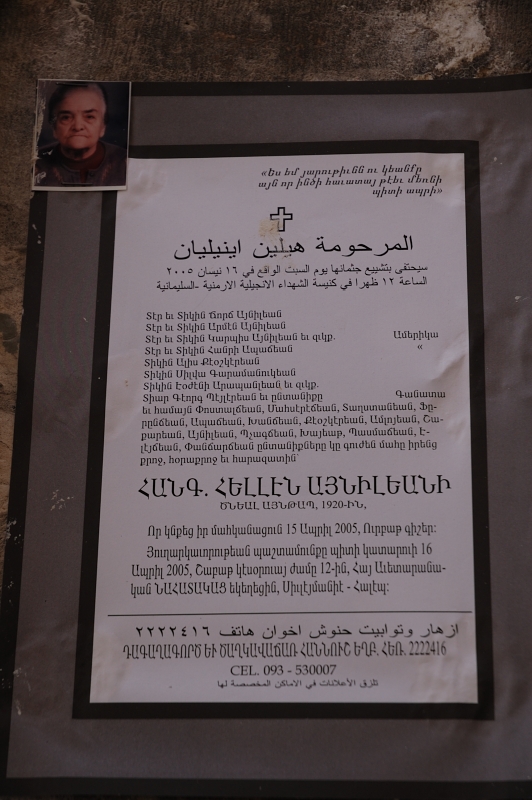 «Ես եմ յարութիւնն ու կեանքը
այն որ ինծի հաւատայ թէեւ մեռնի
պիտի ապրի»
المرحومة هيلين اينيليان
سيحتفى بتشييع جثمانها يوم السبت الواقع في ١٦ نيسان ٢٠٠٥
الساعة ١٢ ظهرا في كنيسة الشهداء الانجيلية الارمنية -السليمانية
Տէր եւ Տիկին Ճորճ Այնիլեան
Տէր եւ Տիկին Արմէն Այնիլեան
Տէր եւ Տիկին Կարպիս Այնիլեան եւ զւկք. Ամերիկա
Տէր եւ Տիկին Հանրի Ապաճեան «
Տիկին Ալիս Քէօշկէրեան
Տիկին Սիլվա Գարամանուկեան
Տիկին Էօժէնի Արապանլեան եւ զւկք.
Տիար Գէորգ Պէյլէրեան եւ ընտանիքը Գանատա
եւ համայն Փոստալճեան, Մահսէրէճեան, Տաղստանեան, Ֆը-
րընճեան, Ապաճեան, Խանճեան, Քէօշկէրեան, Ամլոյեան, Շա-
քարեան, Այնիլեան, Պչագճեան, Խայեաթ, Պասմաճեան, Է-
լէյճեան, Փանճարճեան ընտանիքները կը գուժեն մահը իրենց
քրոջ, հօրաքրոջ եւ հարազատին՝
ՀԱՆԳ. ՀԵԼԼԷՆ ԱՅՆԻԼԵԱՆԻ
ԾՆԵԱԼ ԱՅՆԹԱՊ, 1920-ԻՆ,
Որ կնքեց իր մահկանացուն 15 Ապրիլ 2005, Ուրբաթ գիշեր:
Յուղարկաւորութեան պաշտամունքը պիտի կատարուի 16
Ապրիլ 2005, Շաբաթ կէսօրուայ ժամը 12-ին, Հայ Աւետարանա-
կան ՆԱՀԱՏԱԿԱՑ եկեղեցին, Սիւլէյմանիէ - Հալէպ:
ازهار وتوابيت حنوش اخوان هاتف ٢٢٢٢٤١٦
ԴԱԳԱՂԱԳՈՐԾ ԵՒ ԾԱՂԿԱՎԱՃԱՌ ՀԱՆՆՈՒՇ ԵՂԲ. ՀԵՌ. 2222416
CEL. 093 - 530007
تلزق الأعلانات في الاماكن المخصصة لها